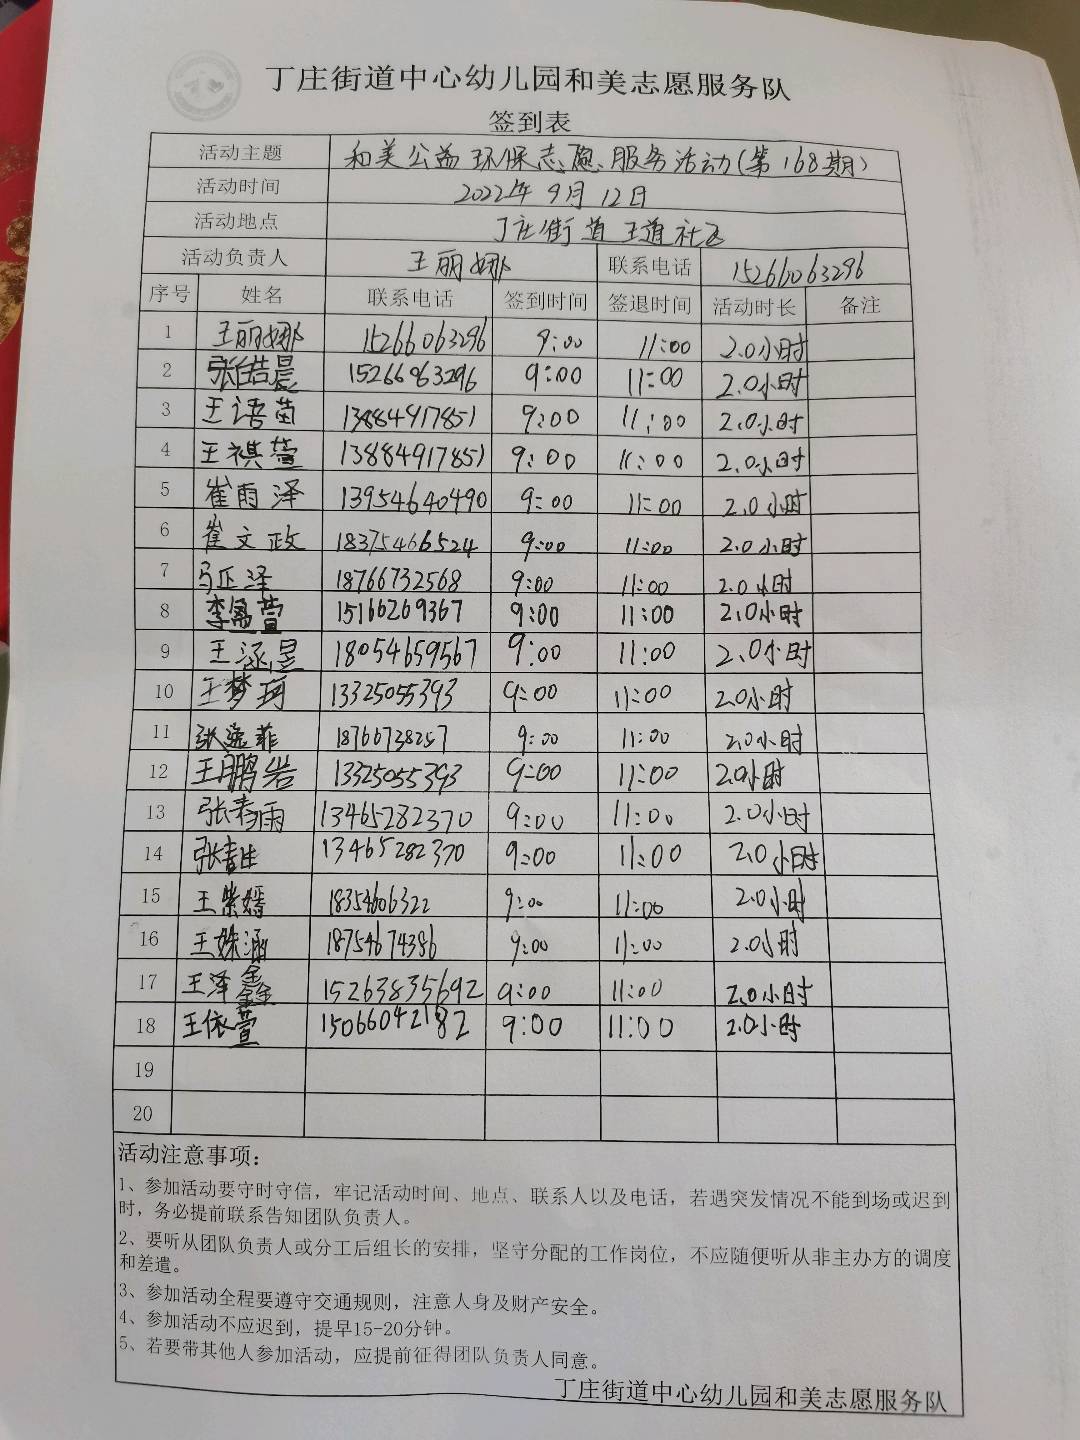 丁庄街道中心幼儿园和美志愿服务队
签到表
活动主题 和美公益环保志愿服务活动(第168期)
活动时间 2022年9月12日
活动地点 丁庄街道王道社区
活动负责人 王丽娜 联系电话 15266063296
序号 姓名 联系电话 签到时间 签退时间 活动时长 备注
1 王丽娜 15266063296 9:00 11:00 2.0小时
2 张皓晨 15266063296 9:00 11:00 2.0小时
3 王语苗 13884917851 9:00 11:00 2.0小时
4 王祺萱 13884917851 9:00 11:00 2.0小时
5 崔雨泽 13954640490 9:00 11:00 2.0小时
6 崔文政 18375466524 9:00 11:00 2.0小时
7 马正泽 18766732568 9:00 11:00 2.0小时
8 李萱 15166269367 9:00 11:00 2.0小时
9 王涵昱 18054659567 9:00 11:00 2.0小时
10 王梦珂 13325055393 9:00 11:00 2.0小时
11 张逸菲 18766738257 9:00 11:00 2.0小时
12 王鹏岩 13325055393 9:00 11:00 2.0小时
13 张春雨 13465282370 9:00 11:00 2.0小时
14 张 13465282370 9:00 11:00 2.0小时
15 王紫嫣 18354606322 9:00 11:00 2.0小时
16 王姝涵 18754674386 9:00 11:00 2.0小时
17 王泽鑫 15263835692 9:00 11:00 2.0小时
18 王依萱 15066042182 9:00 11:00 2.0小时
19
20
活动注意事项:
1、参加活动要守时守信，牢记活动时间、地点、联系人以及电话，若遇突发情况不能到场或迟到
时，务必提前联系告知团队负责人。
2、要听从团队负责人或分工后组长的安排，坚守分配的工作岗位，不应随便听从非主办方的调度
和差遣。
3、参加活动全程要遵守交通规则，注意人身及财产安全。
4、参加活动不应迟到，提早15-20分钟。
5、若要带其他人参加活动，应提前征得团队负责人同意。
丁庄街道中心幼儿园和美志愿服务队